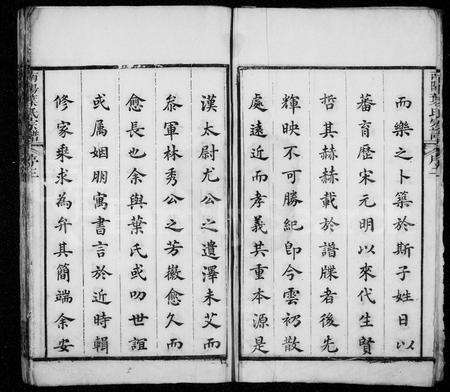 而樂之卜築於斯子姓日以
蕃育歷宋元明以來代生賢
哲其赫赫載於譜牒者後先
輝映不可勝紀卽今雲礽散
處遠近而孝義其重本源是
漢太尉尤公之遺澤未艾而
叅軍林秀公之芳徽愈久而
愈長也余與葉氏或叨世誼
或属姻朋寓書言於近時輯
修家乘求為弁其簡端余安